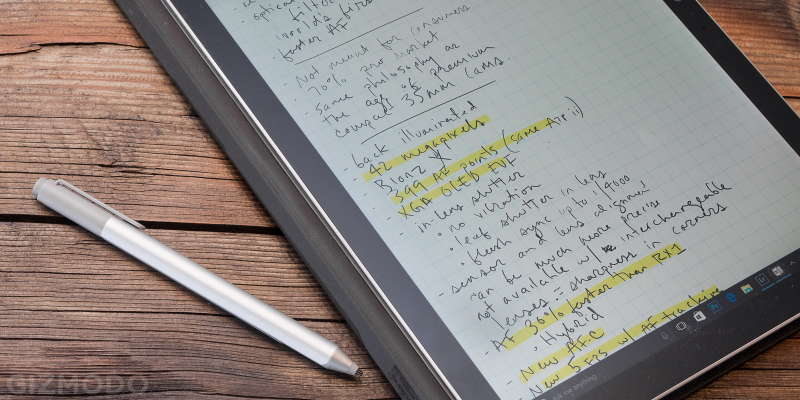 optical
filter
world's first
- faster AF
Not meant for consumers
- 70% pro market
- same philosophy as
the age of premium
compact 35mm cams.
- back illuminated
- 42 megapixels
- Bionz X
- 399 AF points (same A7r ii)
- XGA OLED EVF
- in lens shutter
• no vibration
• leaf shutter in lens
• flash sync up to 1/4000
- sensor and lens alignment
can be much more precise
not available w/ interchangeable
lenses = sharpness in corners
- AF 30% faster than RX1
• Hybrid
- New AF-C
- New 5 FPS w/ AF tracking
Ask me anything
GIZMODO